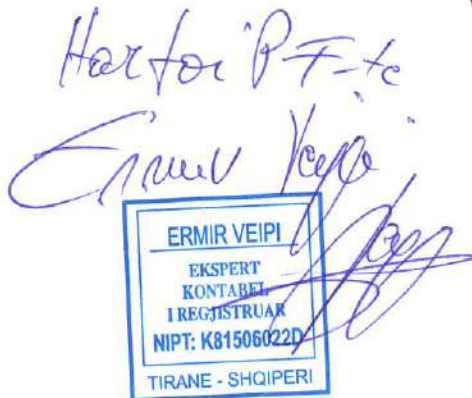 Hartoi P.F-te
Ermir Veipi
ERMIR VEIPI
EKSPERT
KONTABEL
I REGJISTRUAR
NIPT: K81506022D
TIRANE - SHQIPERI